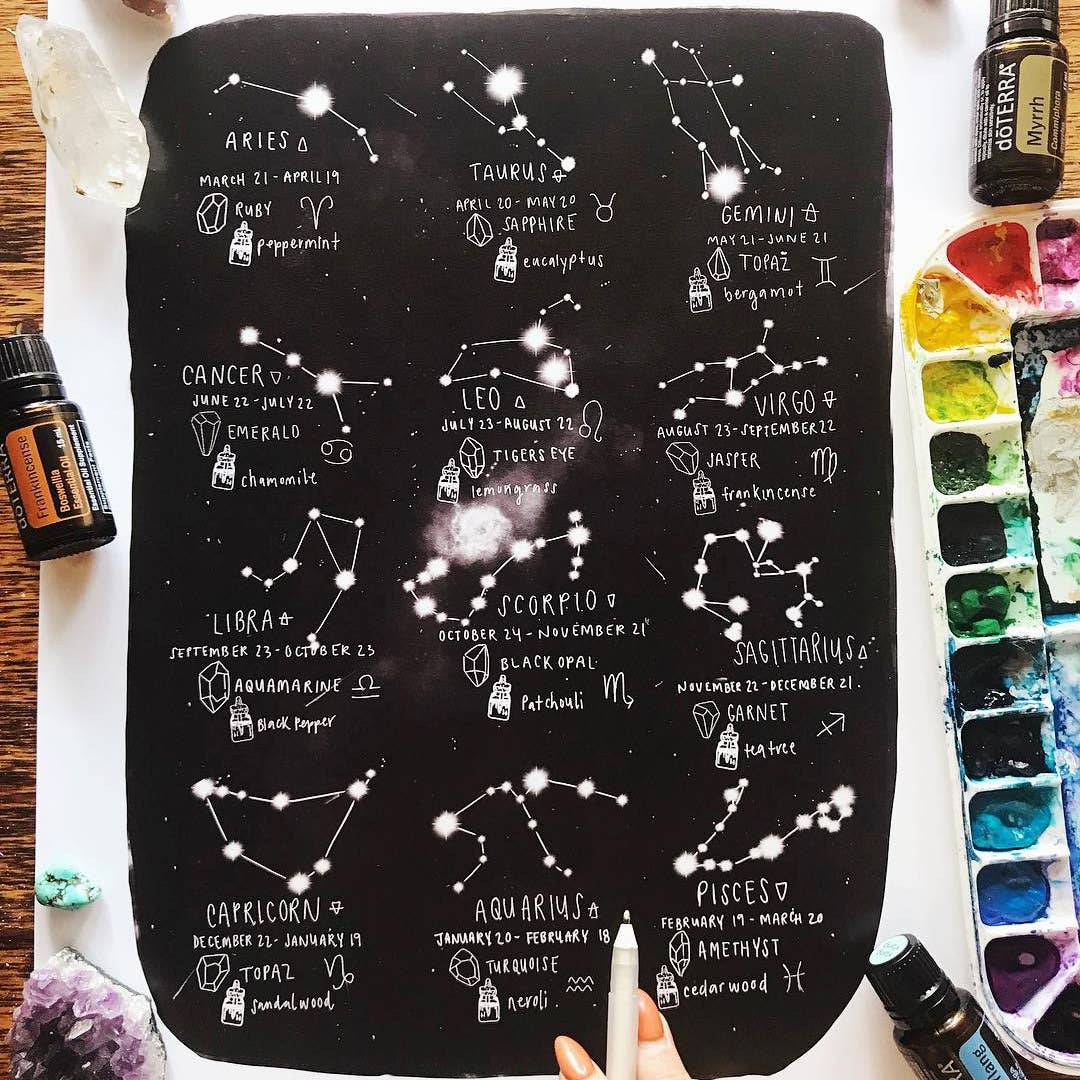 ARIES
MARCH 21 - APRIL 19
RUBY
peppermint
TAURUS
APRIL 20 - MAY 20
SAPPHIRE
eucalyptus
GEMINI
MAY 21 - JUNE 21
TOPAZ
bergamot
CANCER
JUNE 22 - JULY 22
EMERALD
chamomile
LEO
JULY 23 - AUGUST 22
TIGERS EYE
lemongrass
VIRGO
AUGUST 23 - SEPTEMBER 22
JASPER
frankincense
LIBRA
SEPTEMBER 23 - OCTOBER 23
AQUAMARINE
Black Pepper
SCORPIO
OCTOBER 24 - NOVEMBER 21
BLACK OPAL
Patchouli
SAGITTARIUS
NOVEMBER 22 - DECEMBER 21.
GARNET
tea tree
CAPRICORN
DECEMBER 22 - JANUARY 19
TOPAZ
sandalwood
AQUARIUS
JANUARY 20 - FEBRUARY 18
TURQUOISE
neroli
PISCES
FEBRUARY 19 - MARCH 20
AMETHYST
cedarwood
dōTERRA
Myrrh
Commiphora
dōTERRA
Frankincense
Boswellia
Essential Oil
Essential Oil Supplement
15 mL
lang